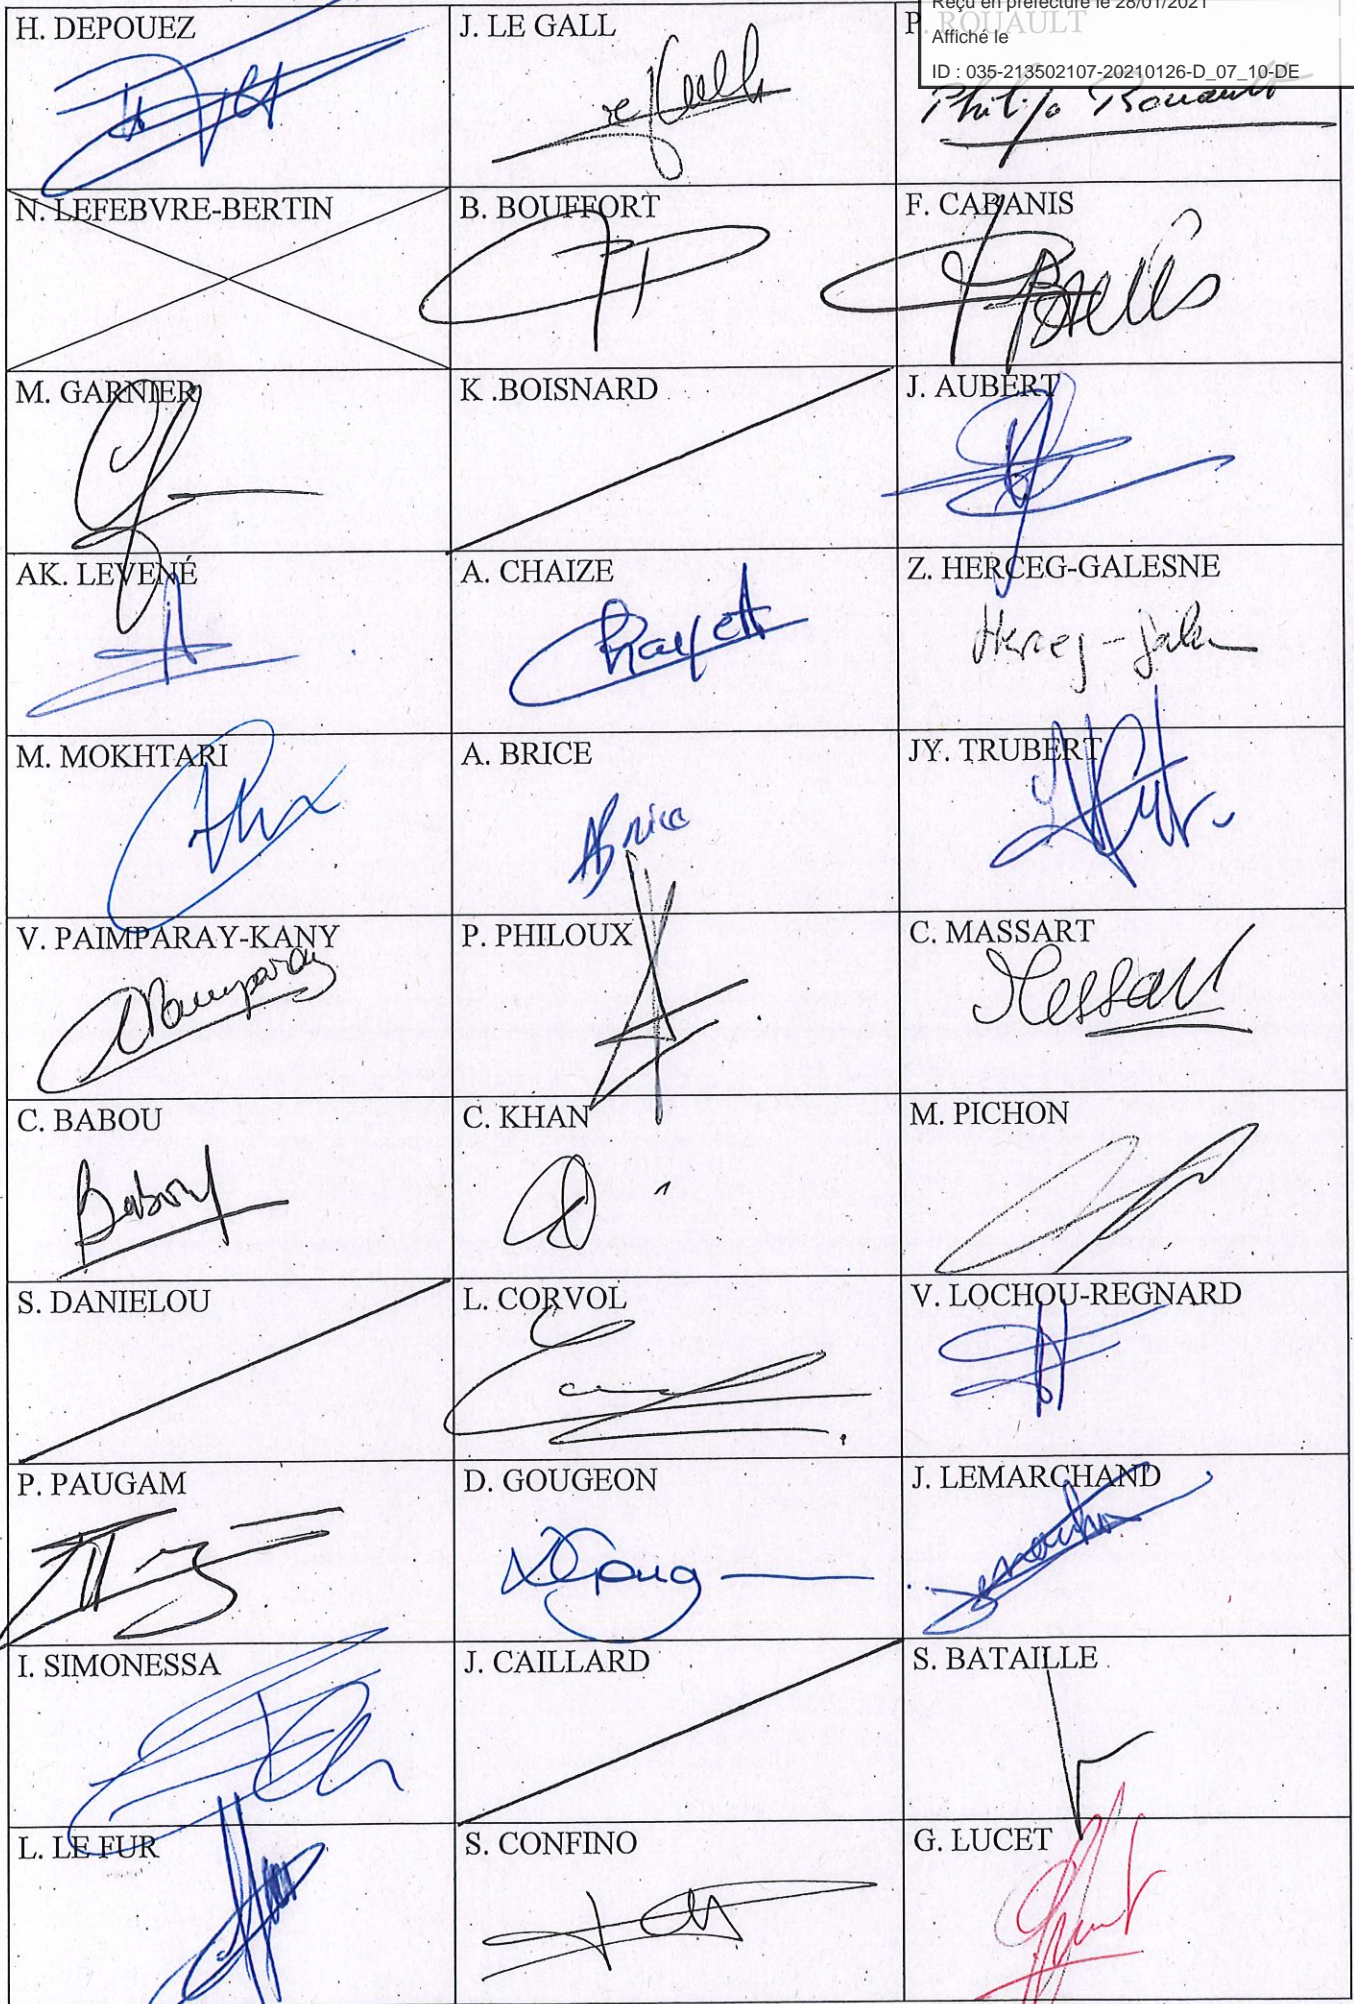 Reçu en préfecture le 28/01/2021
Affiché le
ID : 035-213502107-20210126-D_07_10-DE
H. DEPOUEZ
J. LE GALL
P. ROUAULT
Philipe Rouault
N. LEFEBVRE-BERTIN
B. BOUFFORT
F. CABANIS
M. GARNIER
K .BOISNARD
J. AUBERT
AK. LEVENÉ
A. CHAIZE
Z. HERCEG-GALESNE
M. MOKHTARI
A. BRICE
ABrice
JY. TRUBERT
V. PAIMPARAY-KANY
P. PHILOUX
C. MASSART
C. BABOU
Babou
C. KHAN
M. PICHON
S. DANIELOU
L. CORVOL
V. LOCHOU-REGNARD
P. PAUGAM
D. GOUGEON
J. LEMARCHAND
I. SIMONESSA
J. CAILLARD
S. BATAILLE
L. LE FUR
S. CONFINO
G. LUCET